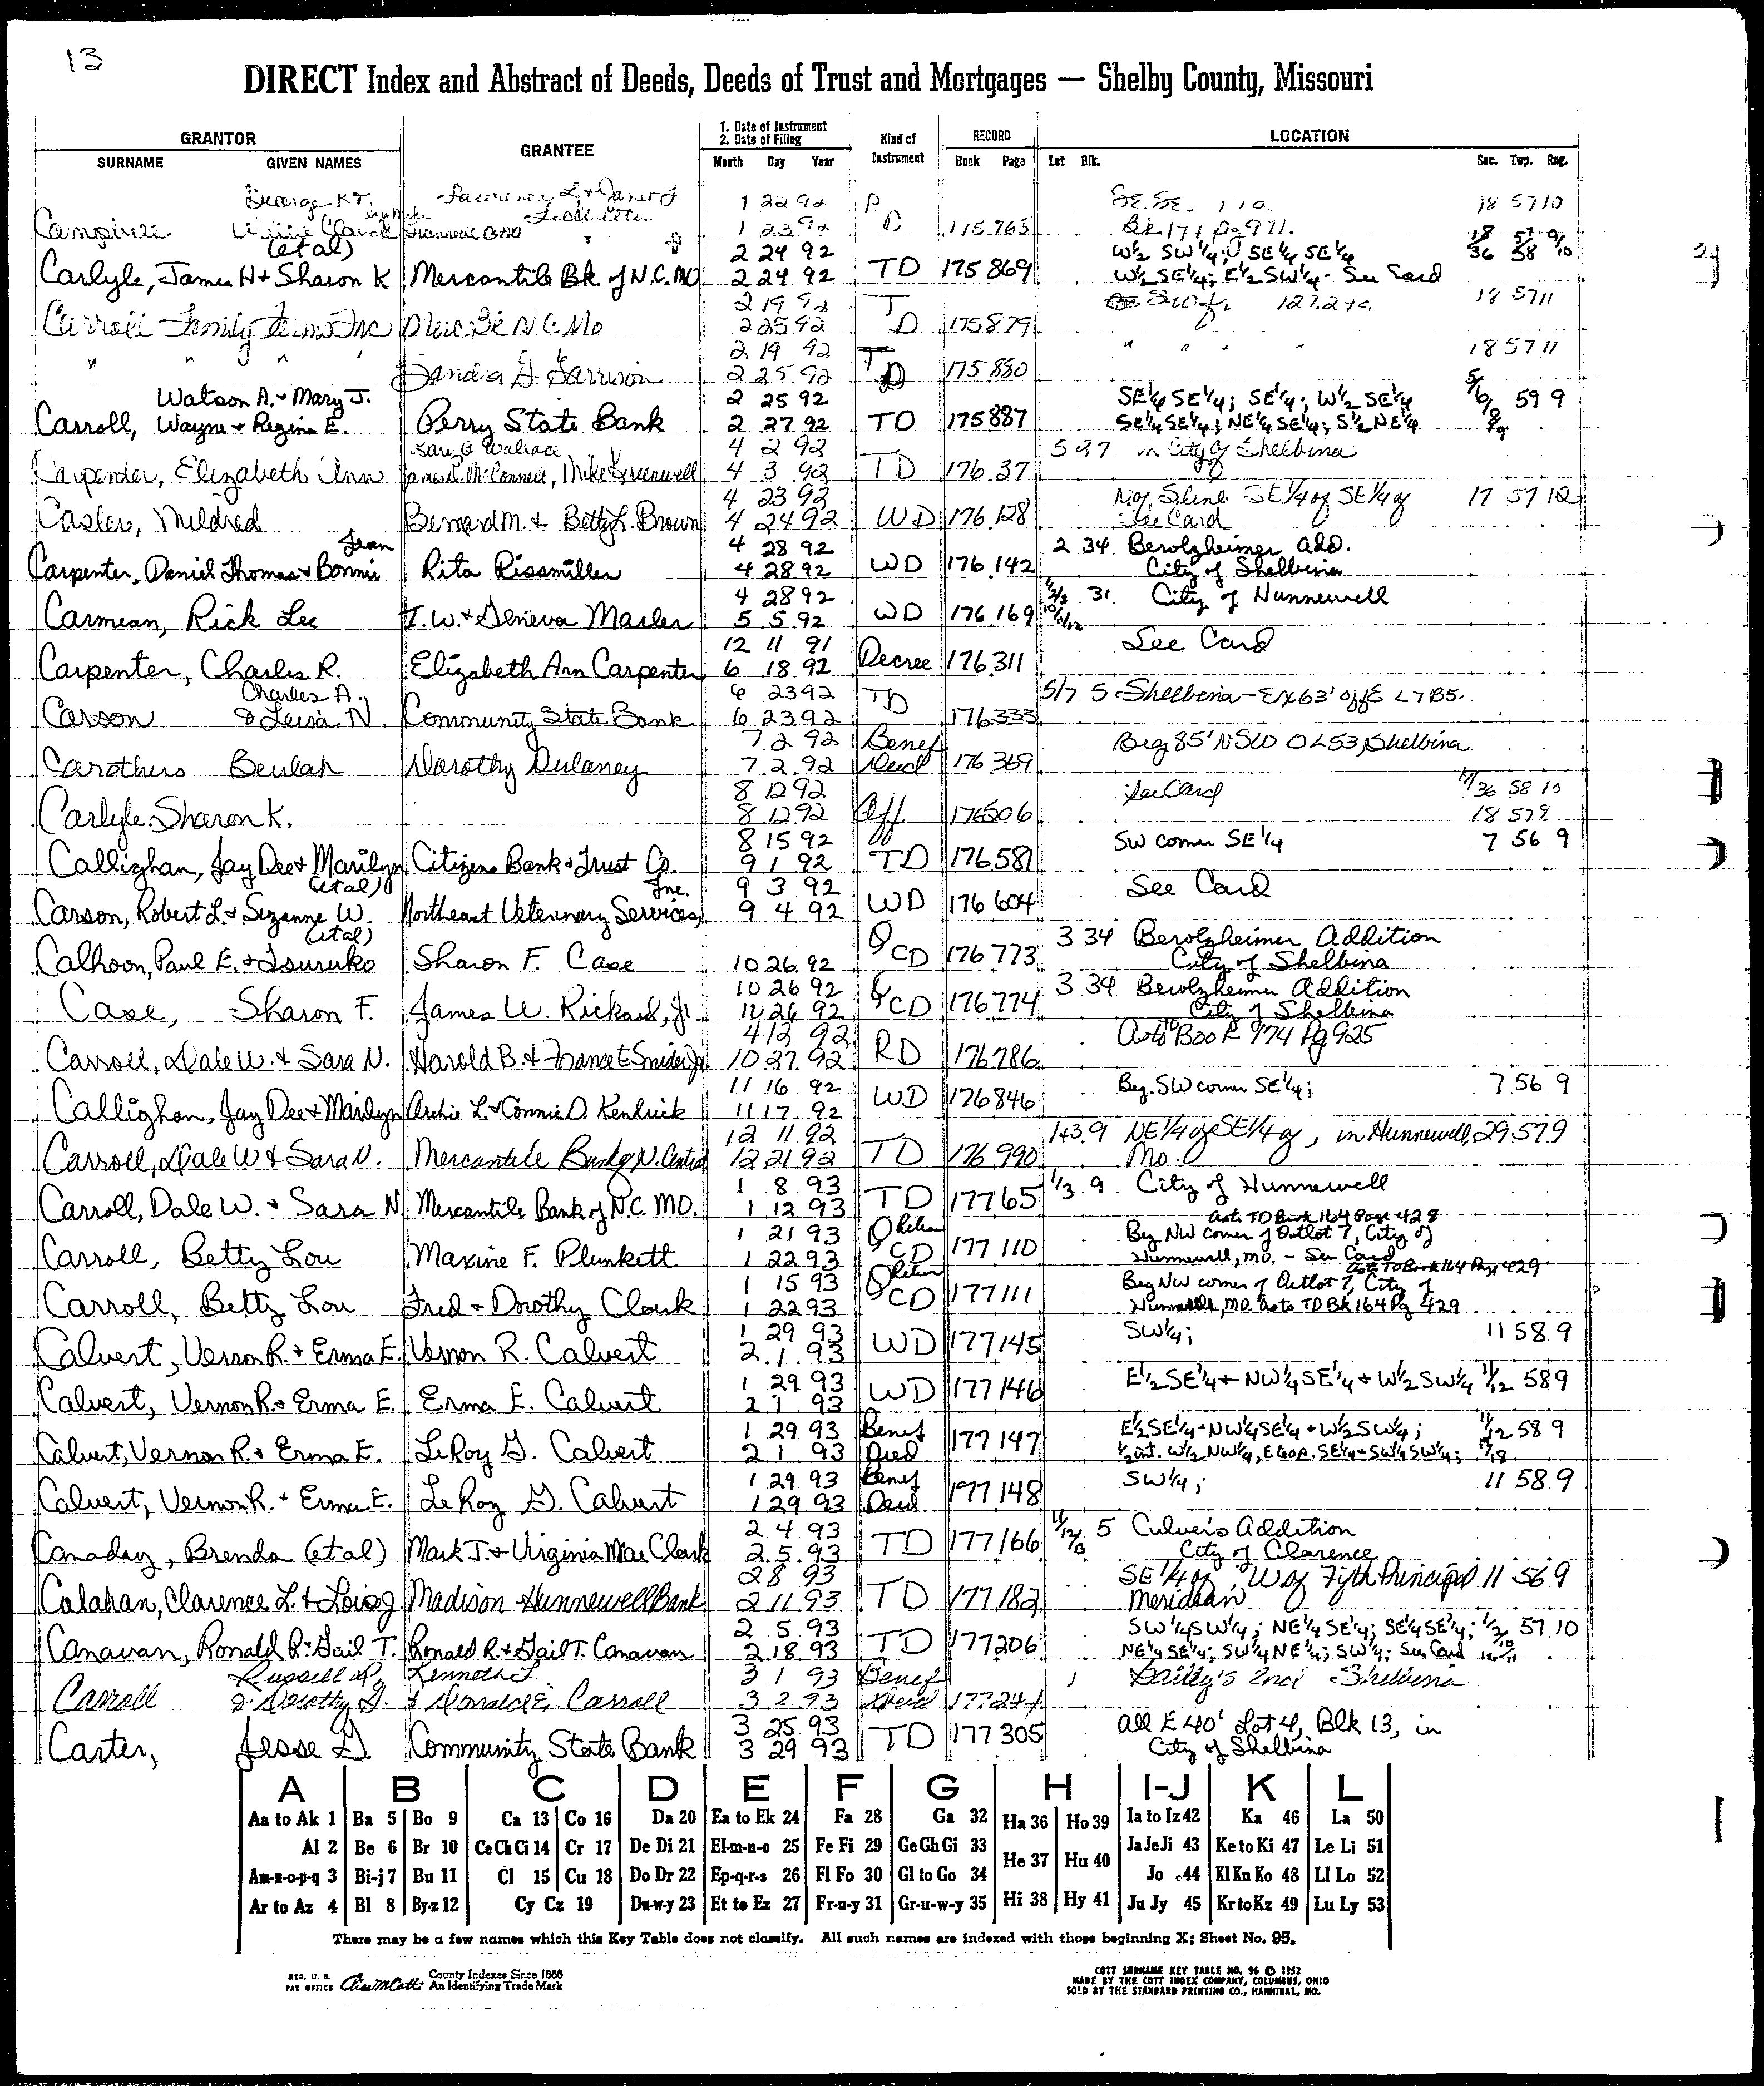 13
DIRECT Index and Abstract of Deeds, Deeds of Trust and Mortgages — Shelby County, Missouri
GRANTOR GRANTEE 1. Date of Instrument 2. Date of Filing Kind of Instrument RECORD LOCATION
SURNAME GIVEN NAMES Month Day Year Book Page Lot Blk. Sec. Twp. Rng.
George K & 1 22 92 R SE. SE 18 57 10
Campbell 1 23 92 D 175 765 Bk 171 Pg 971. 18 57 9
(etal) 2 24 92 W½ SW¼; SE¼ SE¼ 36 58 10
Carlyle, James H + Sharon K Mercantile Bk. of N.C. MO 2 24 92 TD 175 869 W½ SE¼; E½ SW¼ - See Card
2 19 92 T SW fr 127.24a 18 57 11
Carroll Family Farms Inc Merc Bk N C Mo 2 25 92 D 175 879
" " " " 2 19 92 T " " " " 18 57 11
Sandra G Garrison 2 25 92 D 175 880
Watson A. + Mary J. 2 25 92 SE¼ SE¼; SE¼; W½ SE¼ 5/6/ 59 9
Carroll, Wayne + Regina E. Perry State Bank 2 27 92 TD 175 887 SE¼ SE¼; NE¼ SE¼; S½ NE¼ 8/9
Wallace 4 2 92 5 27 in City of Shelbina
Carpenter, Elizabeth Ann James D. McConnell, Mike Greenwell 4 3 92 TD 176 37
4 23 92 N of S line SE 1/4 of SE 1/4 of 17 57 12
Casler, Mildred Bernard M. & Betty L. Brown 4 24 92 WD 176 128 See Card
Jean 4 28 92 2 34 Berolzheimer Add.
Carpenter, Daniel Thomas + Bonnie Rita Rissmiller 4 28 92 WD 176 142 City of Shelbina
4 28 92 31 City of Hunnewell
Carmean, Rick Lee J. W. + Geneva Marler 5 5 92 WD 176 169 10/11/12
12 11 91 See Card
Carpenter, Charles R. Elizabeth Ann Carpenter 6 18 92 Decree 176 311
Charles A. 6 23 92 TD 5/7 5 Shelbina - Ex 63' off E L7 B5.
Carson & Leisa N. Community State Bank 6 23 92 176 333
7 2 92 Benef Beg 85' N SW OL 53, Shelbina
Carothers Beulah Dorothy Dulaney 7 2 92 Deed 176 369
8 12 92 See Card 1/36 58 10
Carlyle Sharon K. 8 12 92 Aff 176 506 18 57 9
8 15 92 SW corner SE¼ 7 56 9
Callighan, Jay Dee + Marilyn Citizens Bank + Trust Co. 9 1 92 TD 176 581
(etal) Inc. 9 3 92 See Card
Carson, Robert L. + Suzanne W. Northeast Veterinary Services, 9 4 92 WD 176 604
(etal) 3 34 Berolzheimer Addition
Calhoon, Paul E. + Tsuruko Sharon F. Case 10 26 92 QCD 176 773 City of Shelbina
10 26 92 3 34 Berolzheimer Addition
Case, Sharon F. James W. Rickard, Jr. 10 26 92 QCD 176 774 City of Shelbina
4 12 92 As to Book 974 Pg 925
Carroll, Dale W. & Sara N. Harold B. & France E Snider Jr 10 27 92 RD 176 786
11 16 92 Beg. SW corner SE¼; 7 56 9
Callighan, Jay Dee + Marilyn Archie L. + Connie D. Kendrick 11 17 92 WD 176 846
12 11 92 1+3 9 NE 1/4 of SE 1/4 of, in Hunnewell, 29 57 9
Carroll, Dale W & Sara N. Mercantile Bank of N. Central 12 21 92 TD 176 990 Mo.
1 8 93 1/3 9 City of Hunnewell
Carroll, Dale W. + Sara N Mercantile Bank of N.C. MO. 1 12 93 TD 177 65
As to TD Book 164 Page 428
1 21 93 Beg NW corner of Outlot 7, City of
Carroll, Betty Lou Maxine F. Plunkett 1 22 93 QCD 177 110 Hunnewell, MO. - See Card
As to TD Book 164 Page 429
1 15 93 Beg NW corner of Outlot 7, City of
Carroll, Betty Lou Fred + Dorothy Clark 1 22 93 QCD 177 111 Hunnewell, MO. As to TD Bk 164 Pg 429
1 29 93 SW¼; 11 58 9
Calvert, Vernon R. + Erma E. Vernon R. Calvert 2 1 93 WD 177 145
1 29 93 E½ SE¼ + NW¼ SE¼ + W½ SW¼ 11/12 58 9
Calvert, Vernon R. + Erma E. Erma E. Calvert 2 1 93 WD 177 146
1 29 93 Benef E½ SE¼ + NW¼ SE¼ + W½ SW¼; 11/12 58 9
Calvert, Vernon R. + Erma E. LeRoy G. Calvert 2 1 93 Deed 177 147 ½ int. W½ NW¼, E 60 A. SE¼ + SW¼ SW¼;
1 29 93 Benef SW¼; 11 58 9
Calvert, Vernon R. + Erma E. LeRoy G. Calvert 1 29 93 Deed 177 148
2 4 93 11/12/13 5 Culver's Addition
Canaday, Brenda (etal) Mark T. + Virginia Mae Clark 2 5 93 TD 177 166 City of Clarence
2 8 93 SE 1/4 of W of Fifth Principal 11 56 9
Calahan, Clarence L. & Lois J Madison Hunnewell Bank 2 11 93 TD 177 182 Meridian
2 5 93 SW¼ SW¼; NE¼ SE¼; SE¼ SE¼; 1/2 57 10
Canavan, Ronald R. + Gail T. Ronald R. + Gail T. Canavan 2 18 93 TD 177 206 NE¼ SE¼; SW¼ NE¼; SW¼; See Card
Russell R. Kenneth L 3 1 93 Benef 1 Bailey's 2nd Shelbina
Carroll & Dorothy D. & Donald E. Carroll 3 2 93 Deed 177 241
3 25 93 All E 40' Lot 4, Blk 13, in
Carter, Jesse D. Community State Bank 3 29 93 TD 177 305 City of Shelbina
A B C D E F G H I-J K L
Aa to Ak 1 Ba 5 Bo 9 Ca 13 Co 16 Da 20 Ea to Ek 24 Fa 28 Ga 32 Ha 36 Ho 39 Ia to Iz 42 Ka 46 La 50
Al 2 Be 6 Br 10 Ce Ch Ci 14 Cr 17 De Di 21 El-m-n-o 25 Fe Fi 29 Ge Gh Gi 33 He 37 Hu 40 Ja Je Ji 43 Ke to Ki 47 Le Li 51
Am-n-o-p-q 3 Bi-j 7 Bu 11 Cl 15 Cu 18 Do Dr 22 Ep-q-r-s 26 Fl Fo 30 Gl to Go 34 Jo 44 Kl Kn Ko 48 Ll Lo 52
Ar to Az 4 Bl 8 By-z 12 Cy Cz 19 Du-w-y 23 Et to Ez 27 Fr-u-y 31 Gr-u-w-y 35 Hi 38 Hy 41 Ju Jy 45 Kr to Kz 49 Lu Ly 53
There may be a few names which this Key Table does not classify. All such names are indexed with those beginning X; Sheet No. 95.
REG. U. S. PAT OFFICE County Indexes Since 1888 An Identifying Trade Mark
COTT SURNAME KEY TABLE NO. 96 © 1952
MADE BY THE COTT INDEX COMPANY, COLUMBUS, OHIO
SOLD BY THE STANDARD PRINTING CO., HANNIBAL, MO.